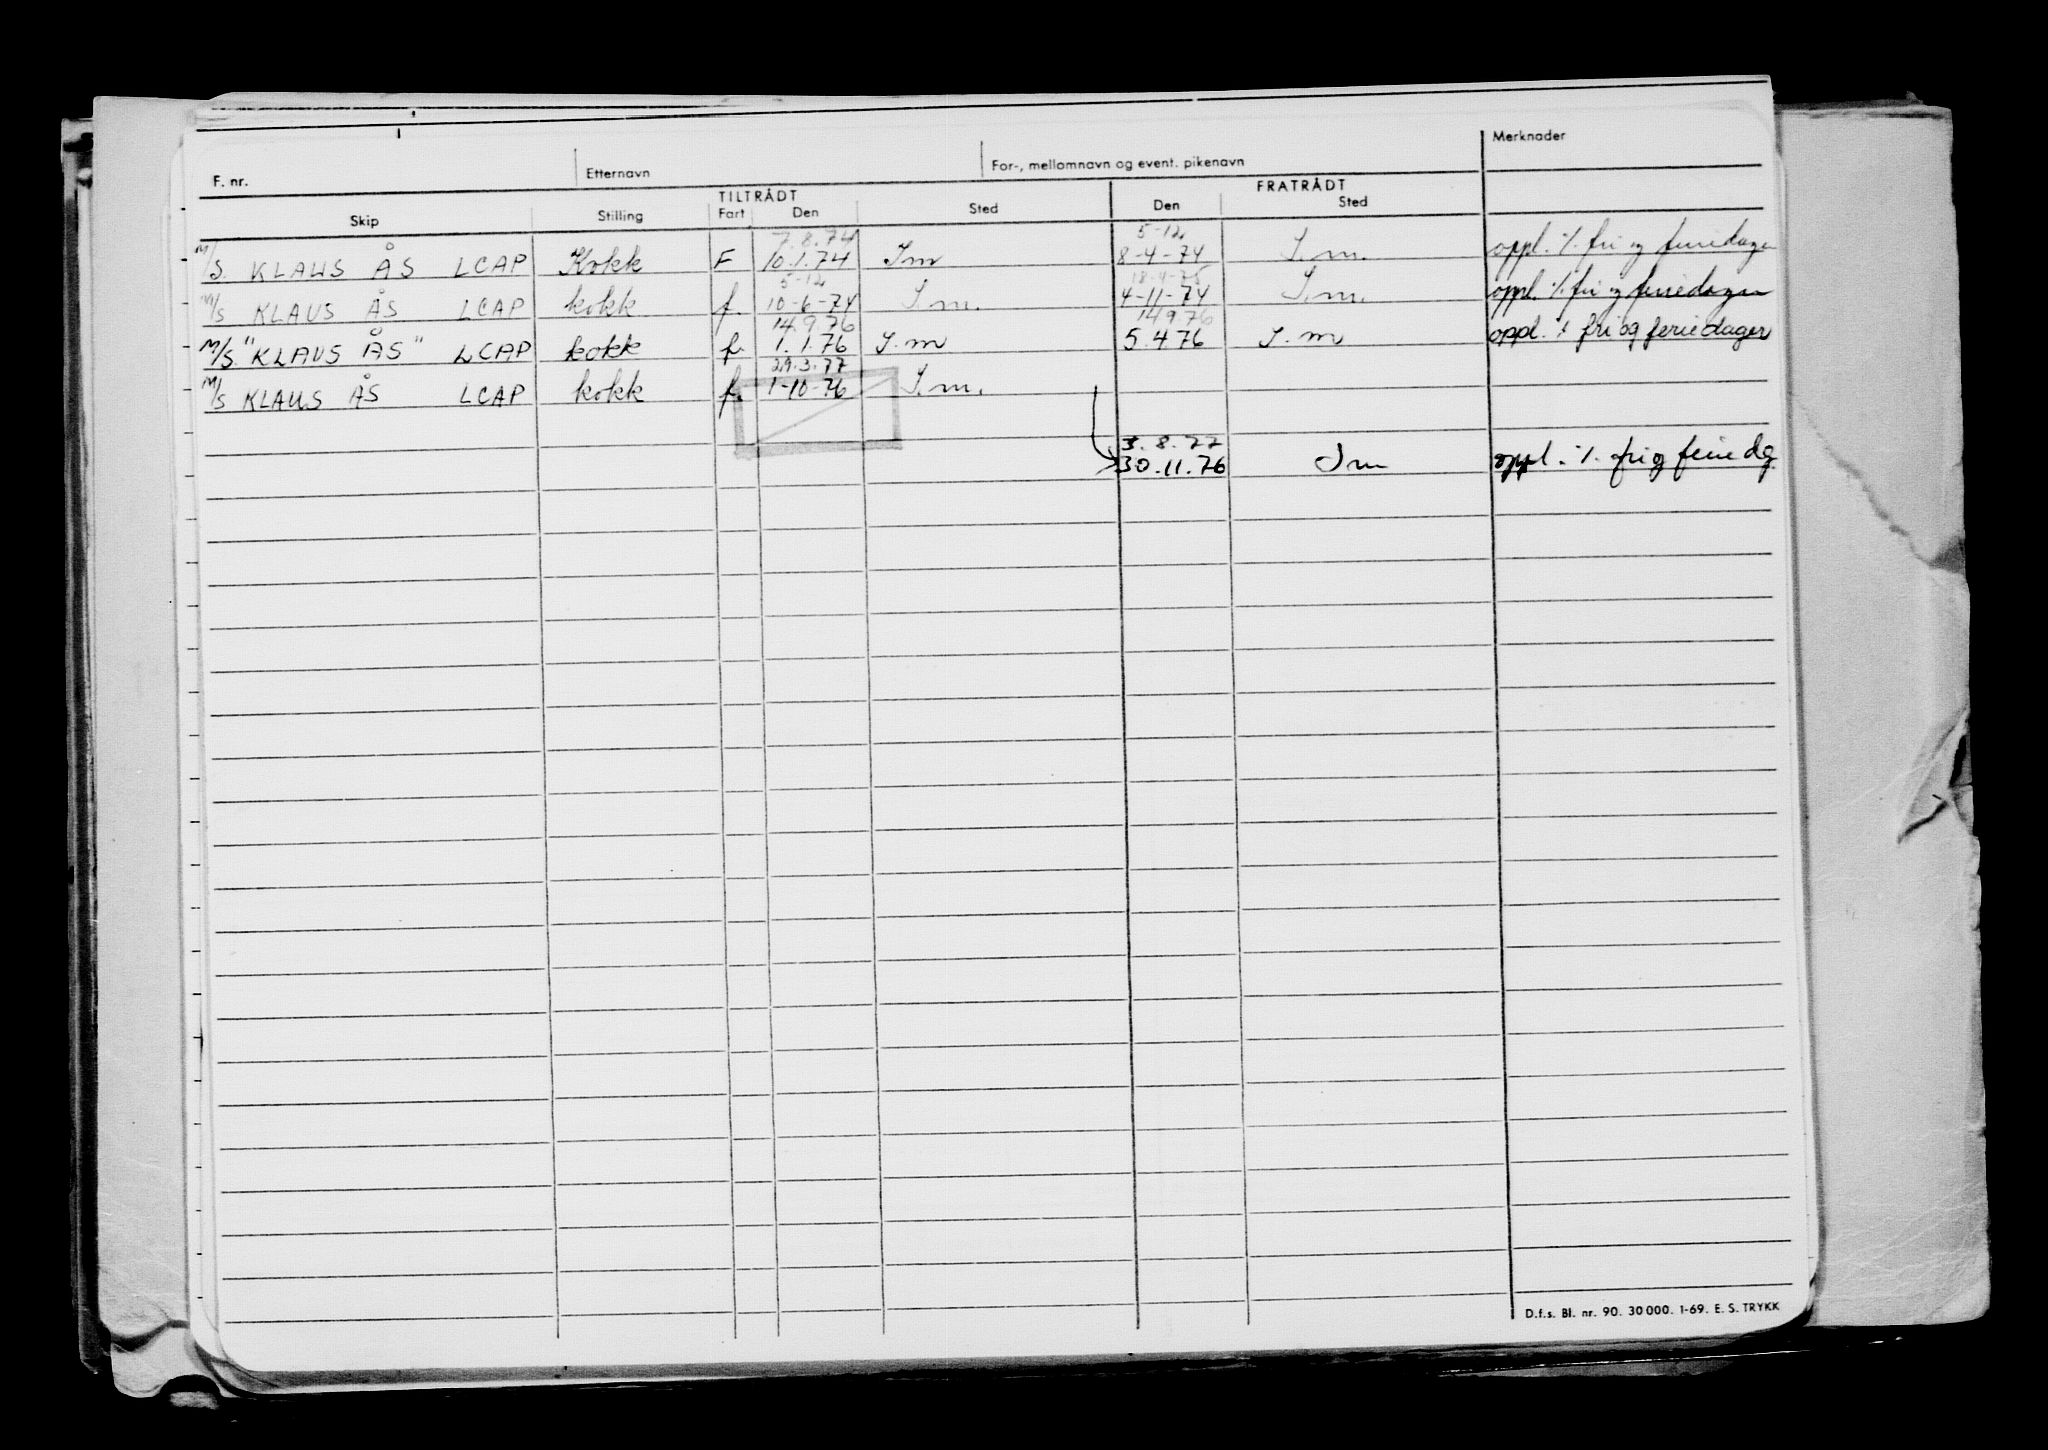 Merknader
F. nr. Etternavn For-, mellomnavn og event. pikenavn
TILTRÅDT FRATRÅDT
Skip Stilling Fart Den Sted Den Sted
7.8.74 5-12
M/S. KLAUS ÅS LCAP Kokk F 10.1.74 Sm 8-4-74 S.m. oppl. ./. fri og feriedager
5-12 18-4-75
M/S KLAUS ÅS LCAP kokk f. 10-6-74 S.m. 4-11-74 S.m. oppl. ./. fri og feriedager
14.9.76 14976
M/S "KLAUS ÅS" LCAP kokk f. 1.1.76 S.m 5.476 S.m oppl. ./. fri og feriedager
29.3.77
M/S KLAUS ÅS LCAP kokk f. 1-10-76 S.m.
3.8.77
30.11.76 Sm oppl. ./. fri og ferie dg.
D.f.s. Bl. nr. 90. 30 000. 1-69. E. S. TRYKK